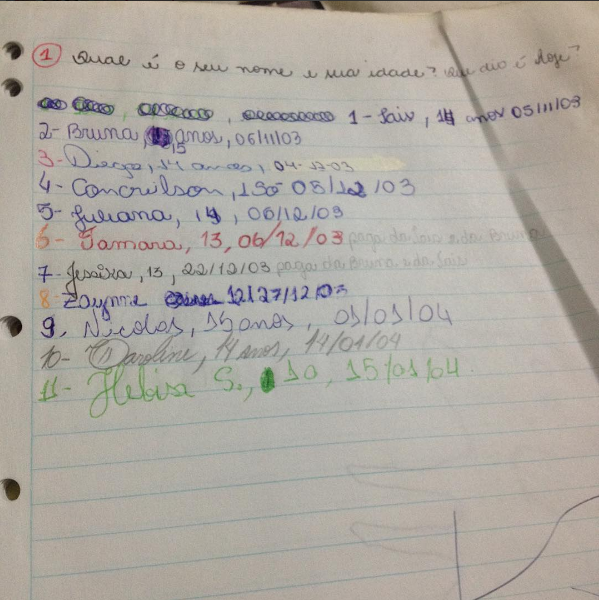 1 Qual é o seu nome e sua idade? Que dia é Hoje?
1- Lais, 14 anos 05/11/03
2- Bruna, 15 anos, 06/11/03
3- Diego, 14 anos, 04-12-03
4- 05/12/03
5- Juliana, 14, 06/12/03
6- Tamara, 13, 06/12/03 paga da Lais e da Bruna
7- Jessica, 13, 22/12/03 paga da Bruna e da Lais
8- Zaynne 12/27/12/03
9. Nicolas, 15 anos, 01/01/04
10- Caroline, 14 anos, 14/01/04
11- S., 10, 15/01/04.